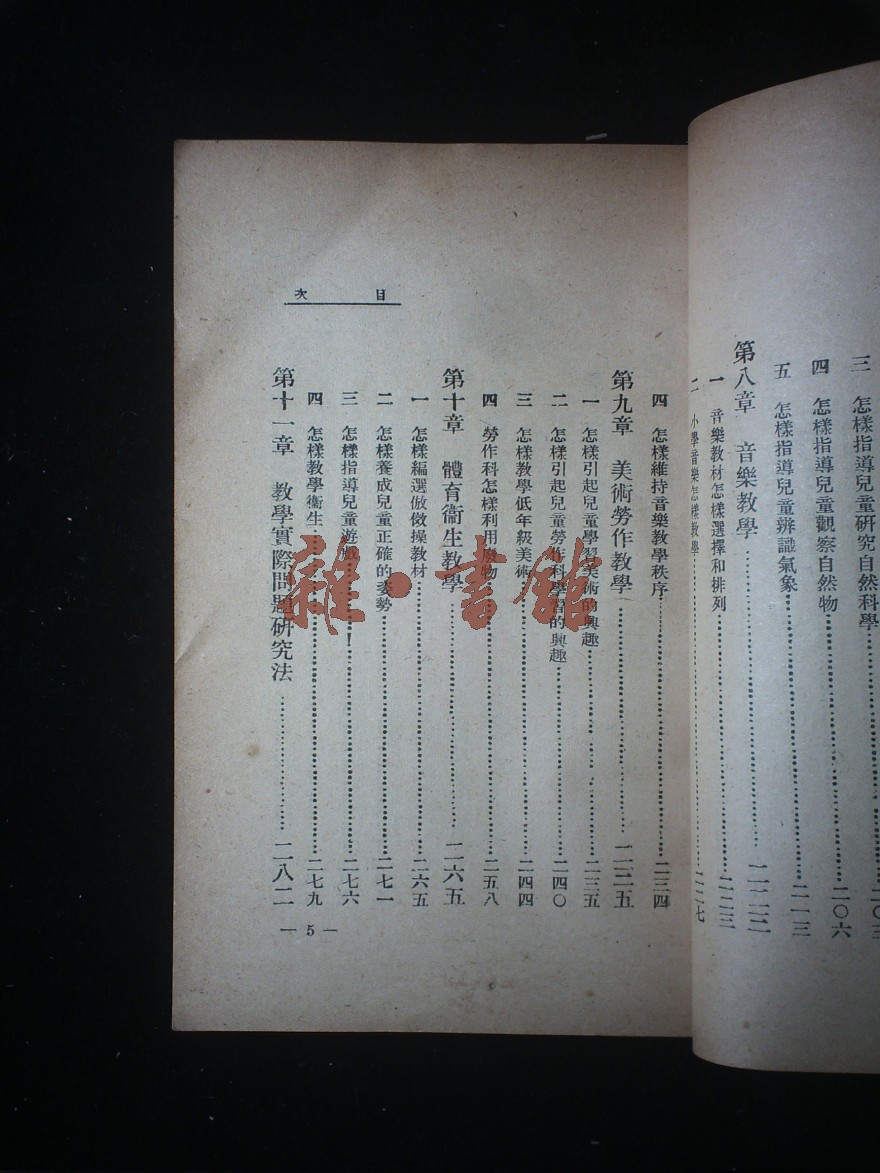 三 怎樣指導兒童研究自然科學……二〇三
四 怎樣指導兒童觀察自然物……二〇六
五 怎樣指導兒童辨識氣象……二一三
第八章 音樂教學……
一 音樂教材怎樣選擇和排列……二二三
二 小學音樂怎樣教學……二二七
目次
四 怎樣維持音樂教學秩序……二三四
第九章 美術勞作教學……二三五
一 怎樣引起兒童學習美術的興趣……二三五
二 怎樣引起兒童勞作科學習的興趣……二四〇
三 怎樣教學低年級美術……二四四
四 勞作科怎樣利用廢物……二五八
第十章 體育衞生教學……二六五
一 怎樣編選倣傚操教材……二六五
二 怎樣養成兒童正確的姿勢……二七一
三 怎樣指導兒童遊戲……二七六
四 怎樣教學衞生……二七九
第十一章 教學實際問題研究法……二八二
— 5 —
雜·書館